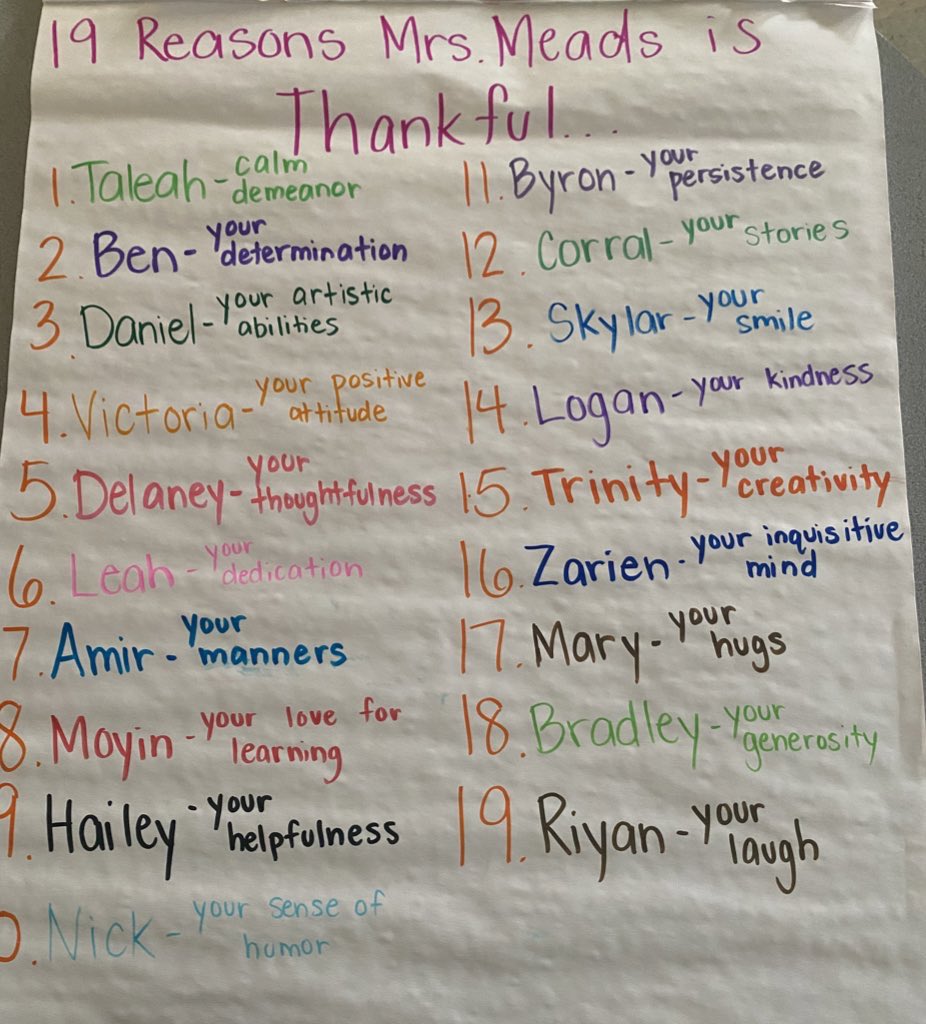 19 Reasons Mrs. Meads is
Thankful...
1. Taleah - calm
demeanor
2. Ben - your
determination
3. Daniel - your artistic
abilities
4. Victoria - your positive
attitude
5. Delaney - your
thoughtfulness
6. Leah - your
dedication
7. Amir - your
manners
8. Moyin - your love for
learning
9. Hailey - your
helpfulness
0. Nick - your sense of
humor
11. Byron - your
persistence
12. Corral - your stories
13. Skylar - your
smile
14. Logan - your kindness
15. Trinity - your
creativity
16. Zarien - your inquisitive
mind
17. Mary - your
hugs
18. Bradley - your
generosity
19. Riyan - your
laugh